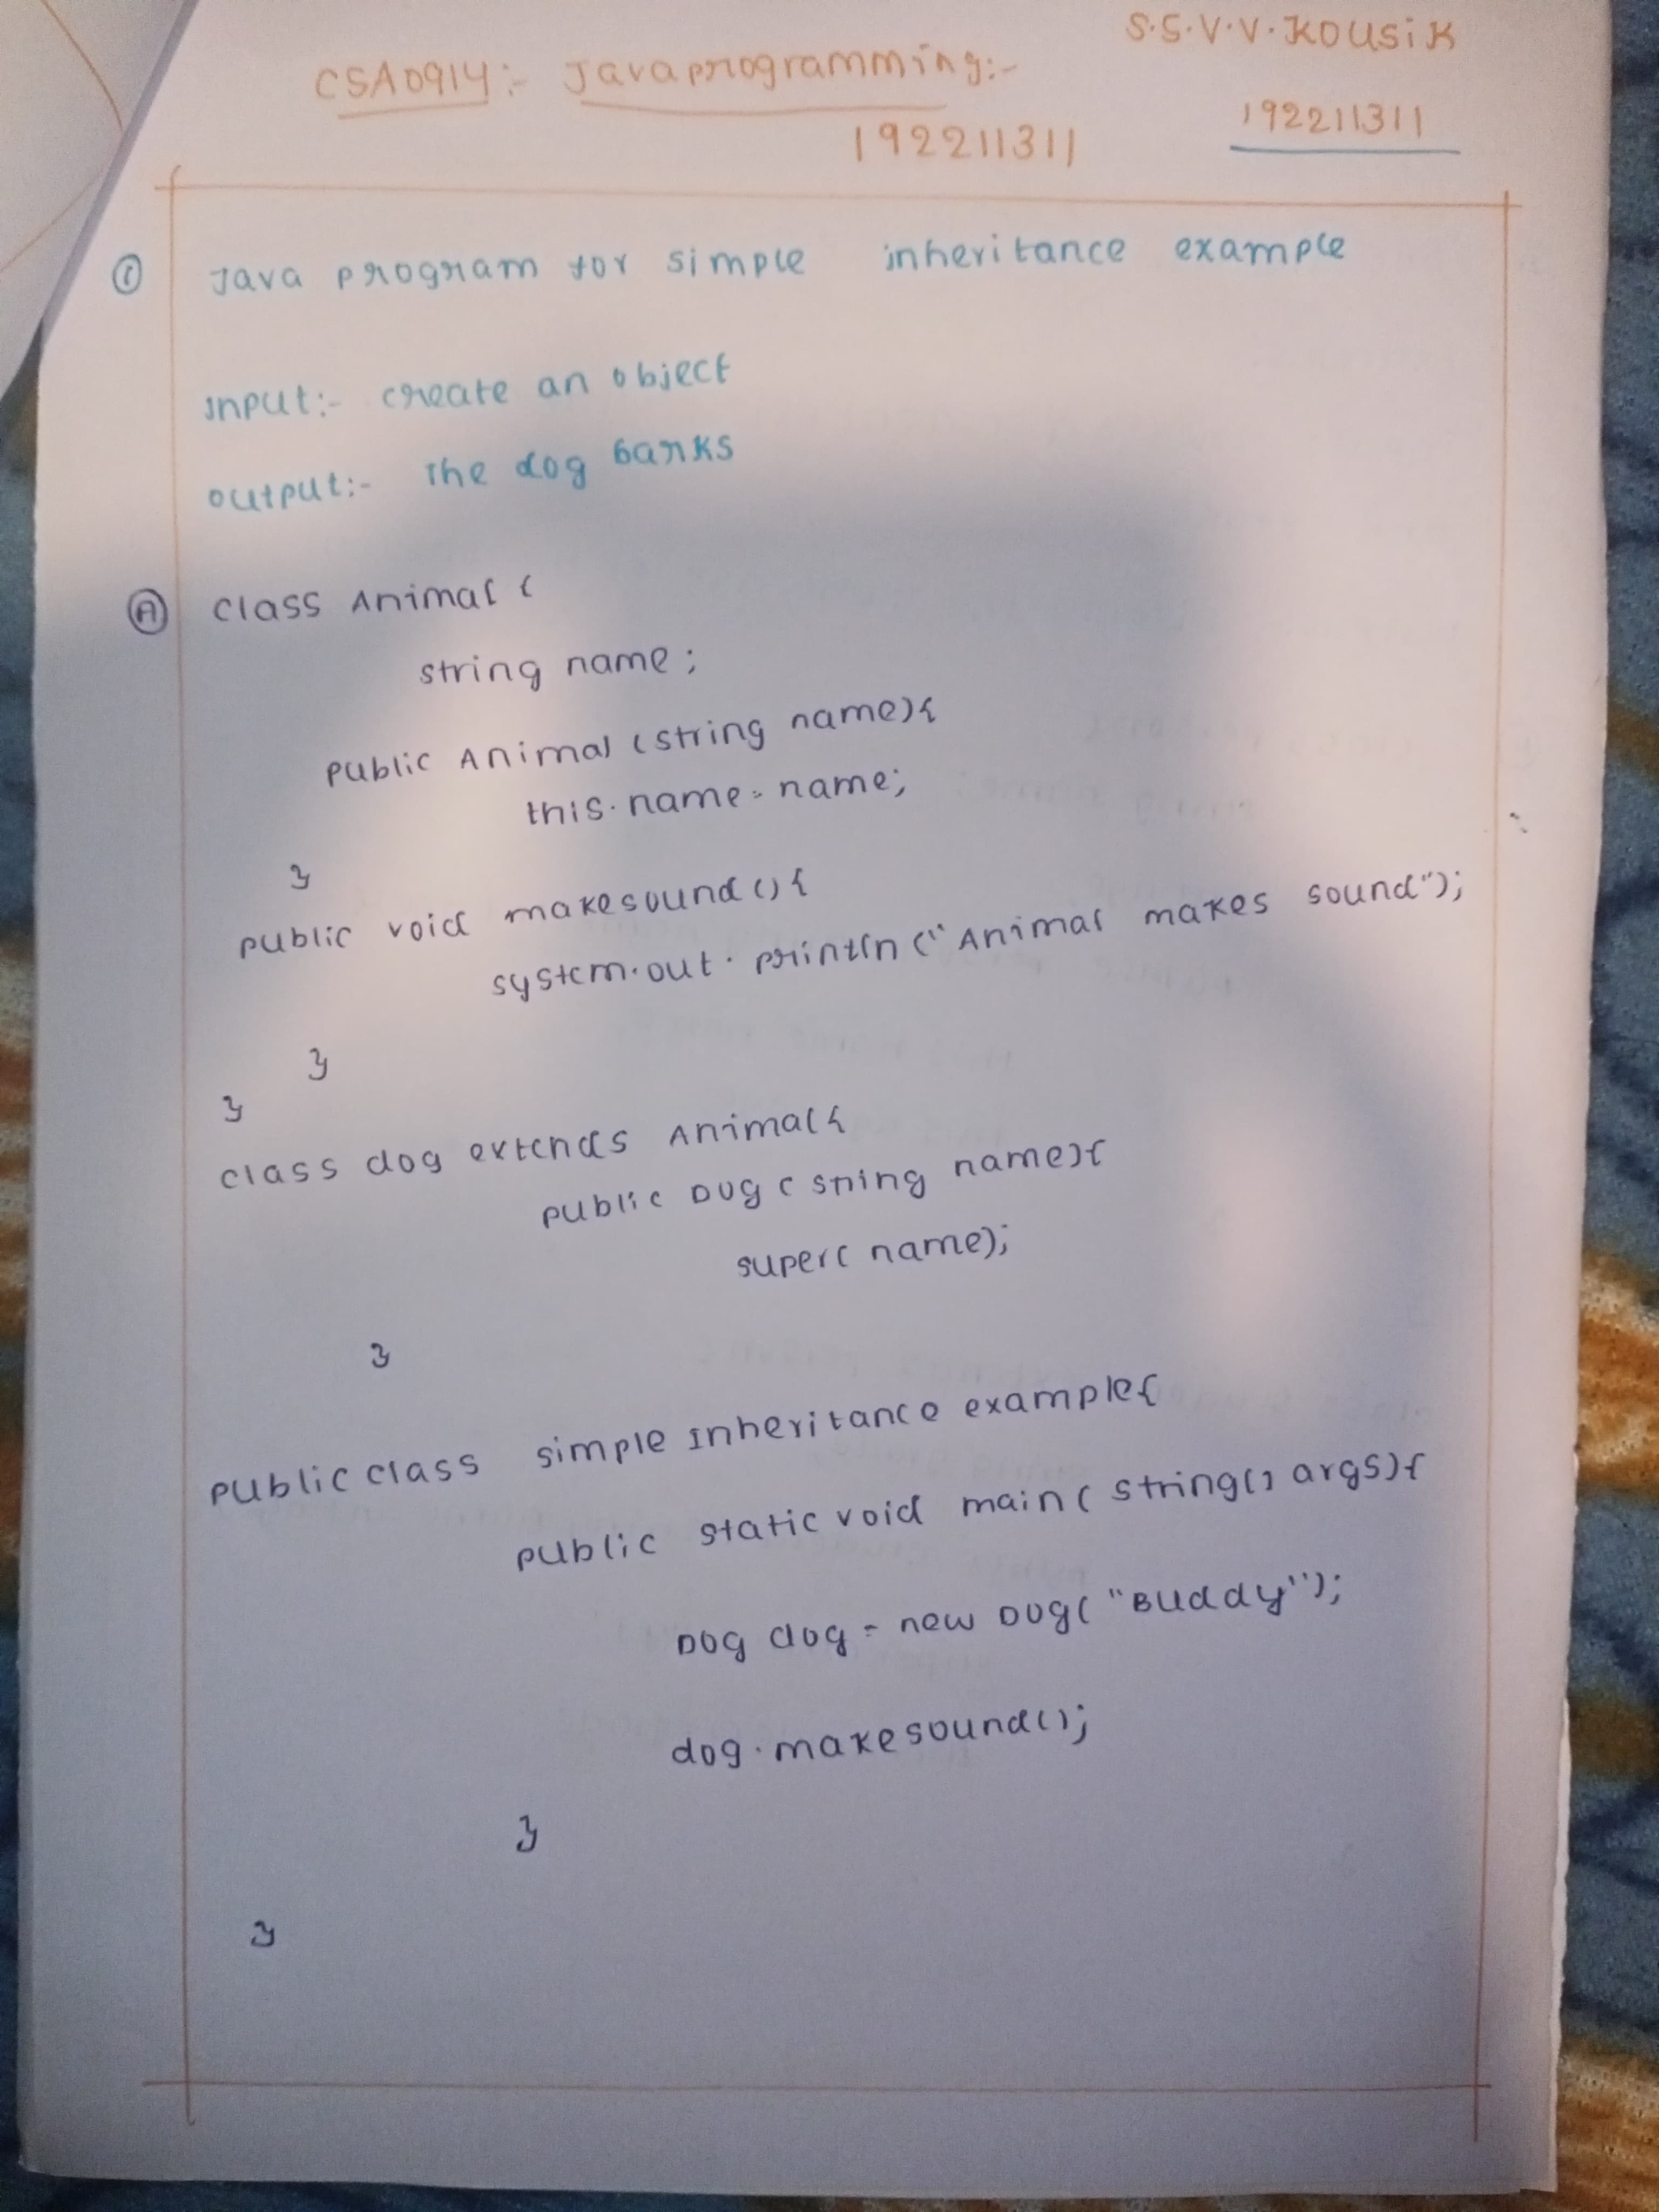 S.S.V.V.KOUSIK
CSA0914:- Java programming:-
192211311
192211311
① Java program for simple inheritance example
Input:- create an object
output:- The dog barks
Ⓐ class Animal {
string name;
public Animal (string name){
this.name=name;
}
public void makesound(){
system.out.println("Animal makes sound");
}
}
class dog extends Animal{
public Dog(string name){
super(name);
}
public class simple Inheritance example{
public static void main(string[] args){
Dog dog = new Dog("Buddy");
dog.makesound();
}
}